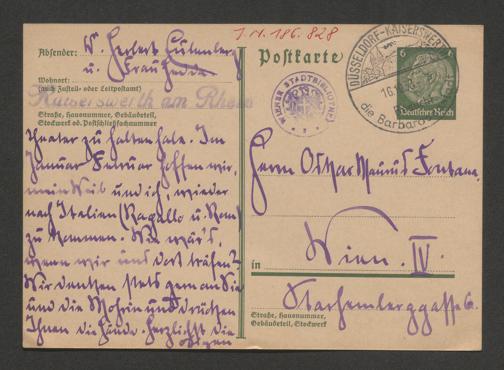 I.N. 186.828
Absender: W. Herbert Eulenberg
u. Frau Hedda
Wohnort:
(auch Zustell- oder Leitpostamt)
Kaiserswerth am Rhein
Straße, Hausnummer,
Gebäudeteil, Stockwerk od. Postschließfachnummer
theater zu halten habe. Im
Januar Februar hoffen wir,
mein Weib und ich, wieder
nach Italien (Rapallo u. Rom)
zu kommen. Wie wär's,
wenn wir uns dort träfen?
Wir denken stets gern an Sie
und die und drücken
Ihnen die Hände. Herzlichst die
obigen
Postkarte
WIENER STADTBIBLIOTHEK
DÜSSELDORF-KAISERSWERTH
die Barbaro
6 6
Deutsches Reich
Herrn Oskar Maurus Fontana
in Wien. IV.
Starhemberggasse 6.
Straße, Hausnummer,
Gebäudeteil, Stockwerk